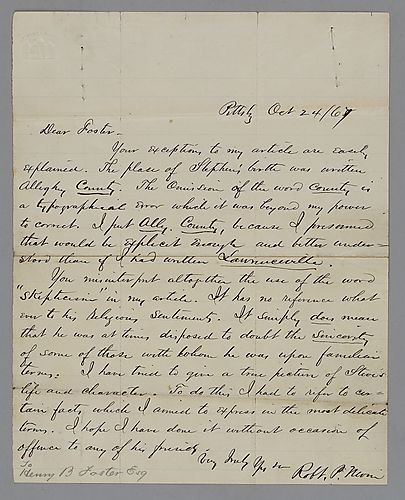 Pittsbg Oct 24/67
Dear Foster-
Your exceptions to my article are easily
explained. The place of Stephen's birth was written
Allegheny County. The Omission of the word County is
a typographical error which it was beyond my power
to correct. I put Ally. County, because I presumed
that would be explicit enough and better under-
stood than if I had written Lawrenceville.
You misinterpret altogether the use of the word
"Skepticism" in my article. It has no reference what
ever to his religious sentiments. It simply does mean
that he was at times disposed to doubt the sincerity
of some of those with whom he was upon familiar
terms. I have tried to give a true picture of Steve's
life and character. To do this I had to refer to cer-
tain facts, which I aimed to express in the most delicate
terms. I hope I have done it without occasion of
offence to any of his friends
Very truly Yrs &c
Robt. P. Nevin
To
Henry B Foster Esq